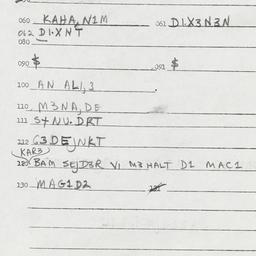 060 KAHA, N1M 061 D1.X3N3N
062 D1.XNT
080
090 $ 091 $
100 AN AL1,3
110 M3NA,DE
111 S4NU.DRT
112 G3DEJNKT
KAR3
120 BAM SEJD3R V1 M3 HALT D1 MAC1
130 MAG1D2